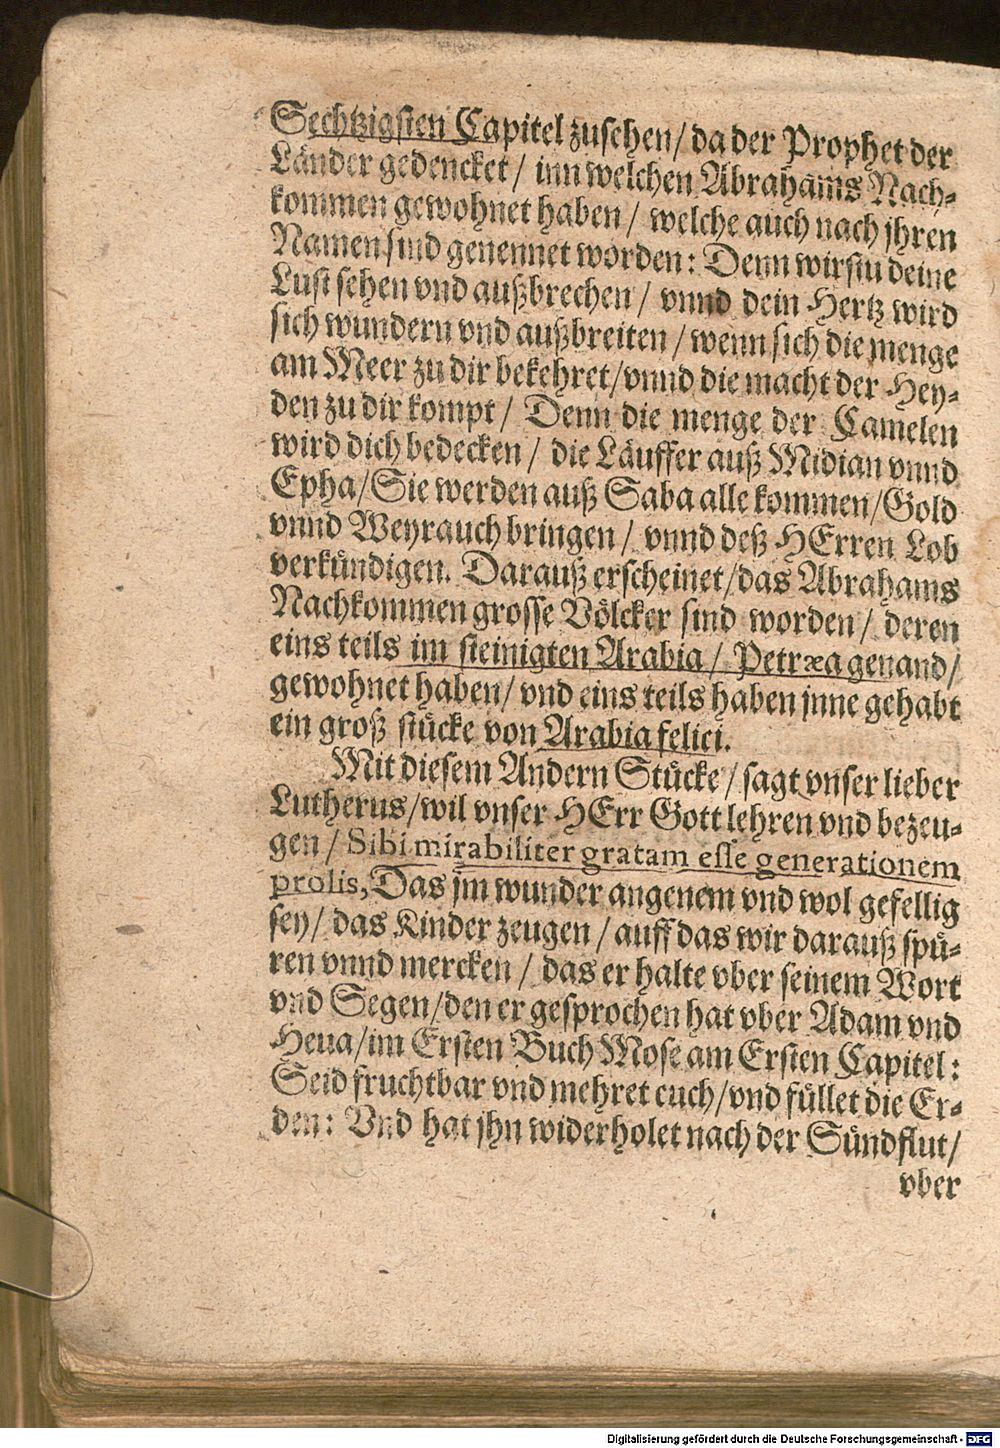 Sechtzigsten Capitel zusehen/ da der Prophet der
Länder gedencket/ inn welchen Abrahams Nach-
kommen gewohnet haben/ welche auch nach jhren
Namen sind genennet worden: Denn wirstu deine
Lust sehen vnd außbrechen/ vnnd dein Hertz wird
sich wundern vnd außbreiten/ wenn sich die menge
am Meer zu dir bekehret/ vnnd die macht der Hey-
den zu dir kompt/ Denn die menge der Camelen
wird dich bedecken/ die Läuffer auß Midian vnnd
Epha/ Sie werden auß Saba alle kommen/ Gold
vnnd Weyrauch bringen/ vnnd deß HErren Lob
verkündigen. Darauß erscheinet/ das Abrahams
Nachkommen grosse Völcker sind worden/ deren
eins teils im steinigten Arabia/ Petræa genand/
gewohnet haben/ vnd eins teils haben jnne gehabt
ein groß stücke von Arabia felici.
Mit diesem Andern Stücke/ sagt vnser lieber
Lutherus/ wil vnser HErr Gott lehren vnd bezeu-
gen/ Sibi mirabiliter gratam esse generationem
prolis, Das jm wunder angenem vnd wol gefellig
sey/ das Kinder zeugen/ auff das wir darauß spü-
ren vnnd mercken/ das er halte vber seinem Wort
vnd Segen/ den er gesprochen hat vber Adam vnd
Heua/ im Ersten Buch Mose am Ersten Capitel:
Seid fruchtbar vnd mehret euch/ vnd füllet die Er-
den: Vnd hat jhn widerholet nach der Sündflut/
vber
Digitalisierung gefördert durch die Deutsche Forschungsgemeinschaft - DFG